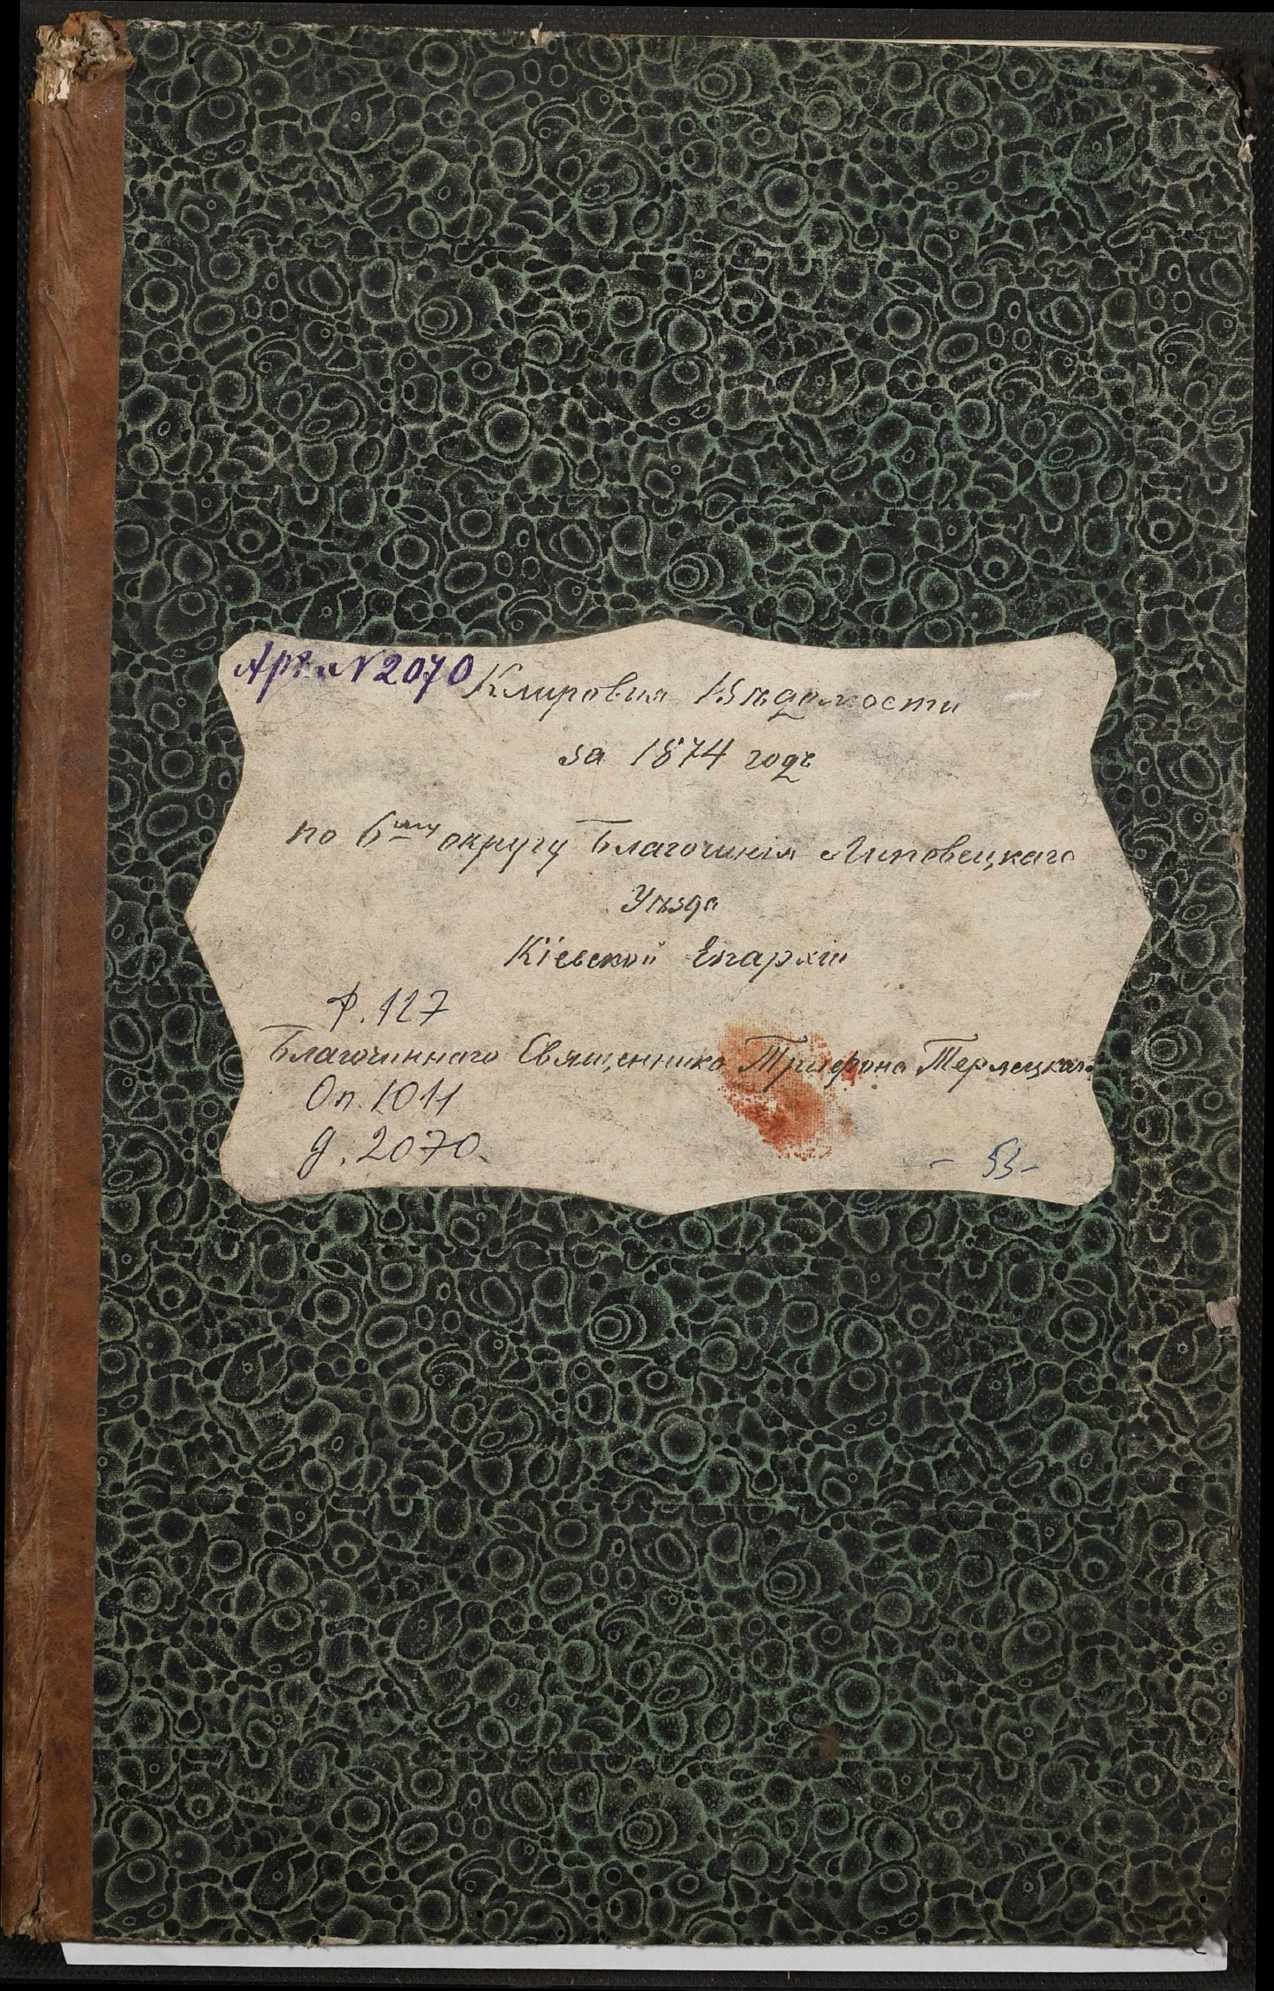 Арх. №2070
Клировыя Вѣдомости
за 1874 годъ
по 6му округу Благочинія Липовецкаго
Уѣзда
Кіевской Епархіи
Ф. 127
Благочиннаго Священника Трифона Терлецкаго
Оп. 1011
д. 2070.
- 53-